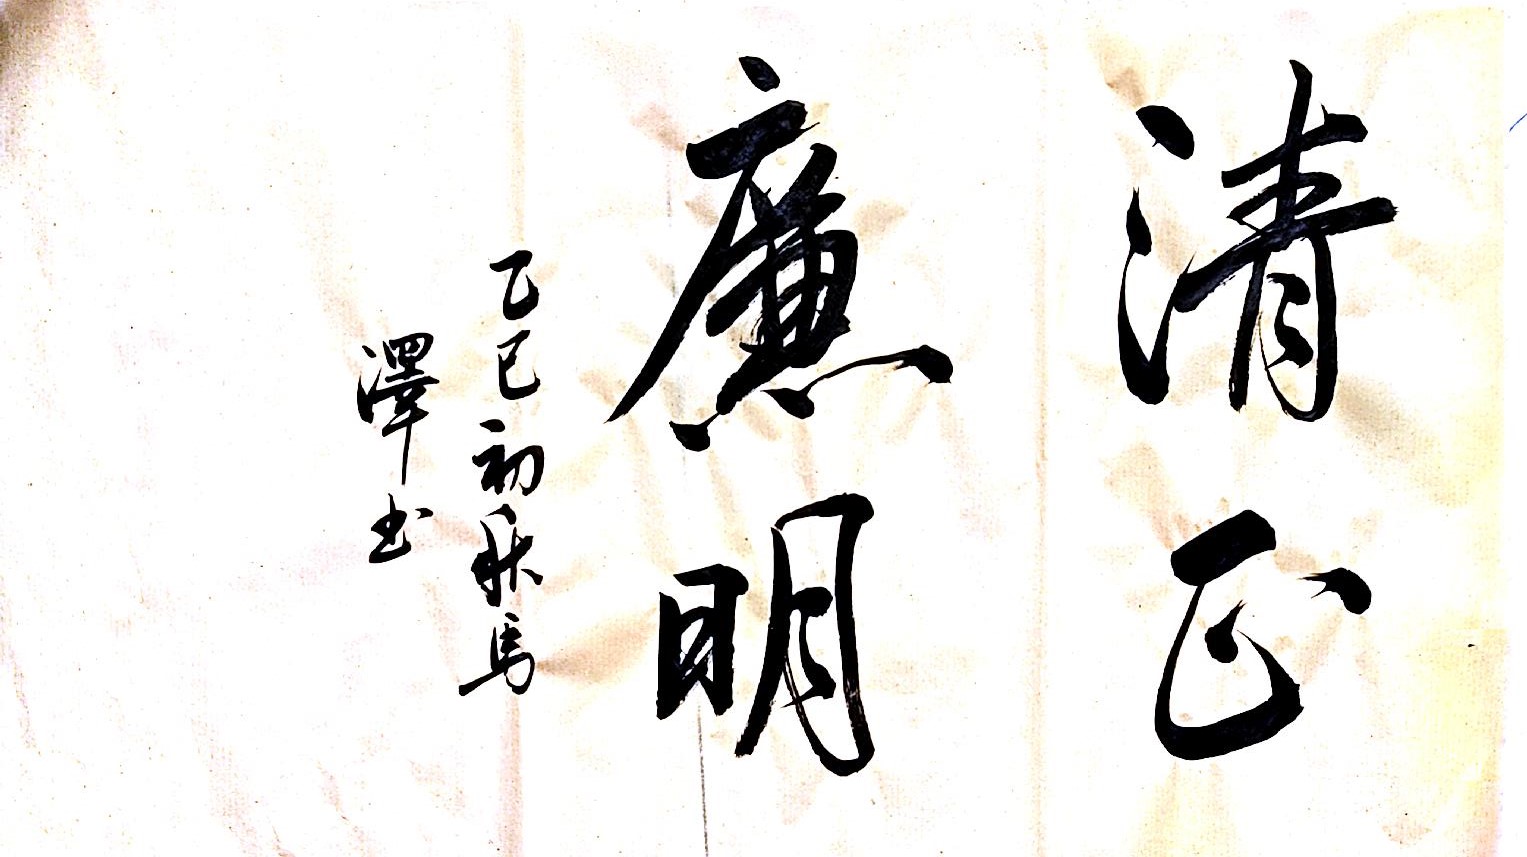 清正
廉明
乙巳初秋馬
澤书